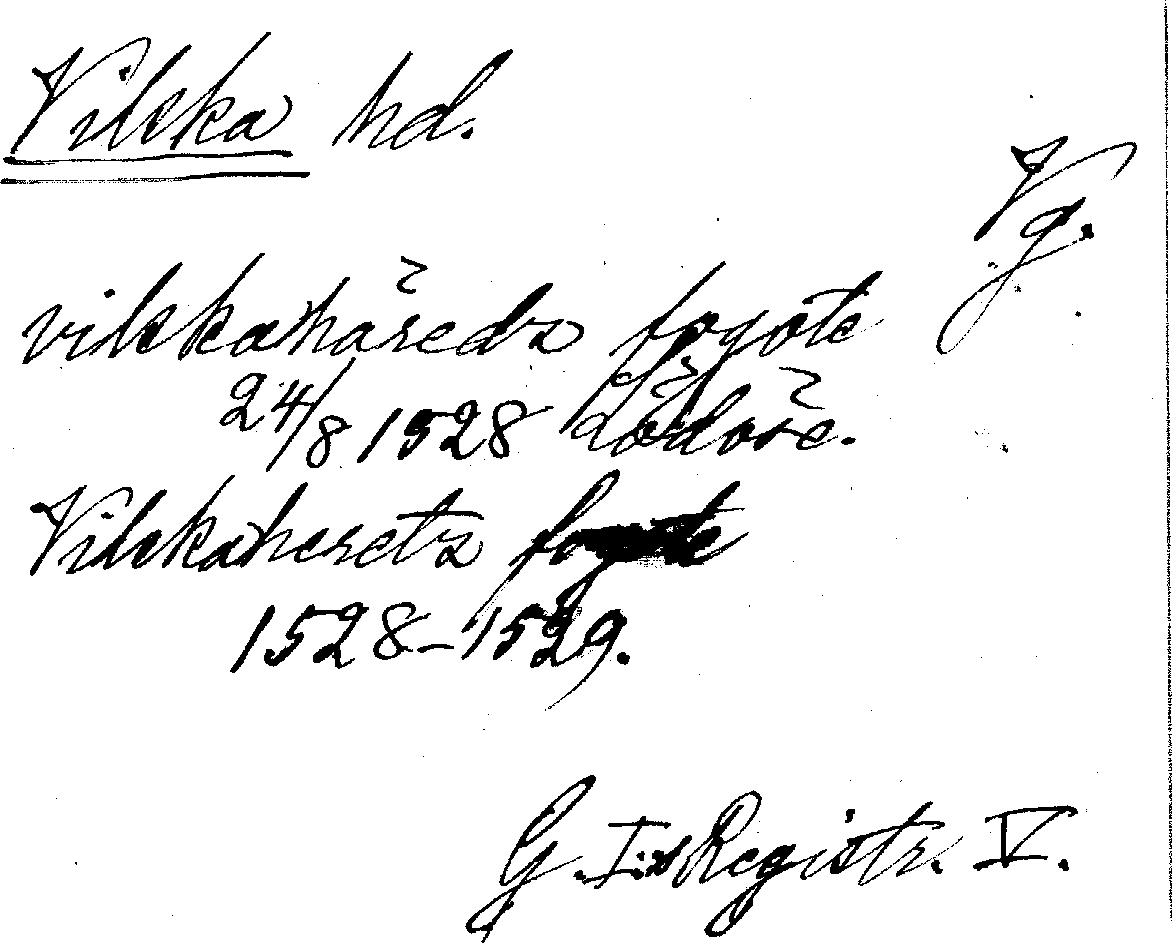 Vilska hd.
Vg.
vilskahäredz fogote
24/8 1528 Lödöse.
Vilskaheretz fogote
1528-1529.
G. I:s Registr. V.